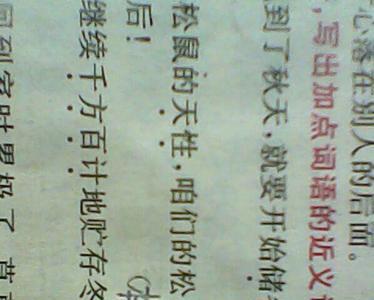 心落在别人的后面。
,写出加点词语的近义
到了秋天,就要开始储
松鼠的天性,咱们的松
后!
继续千方百计地贮存冬
回到家时累坏了,